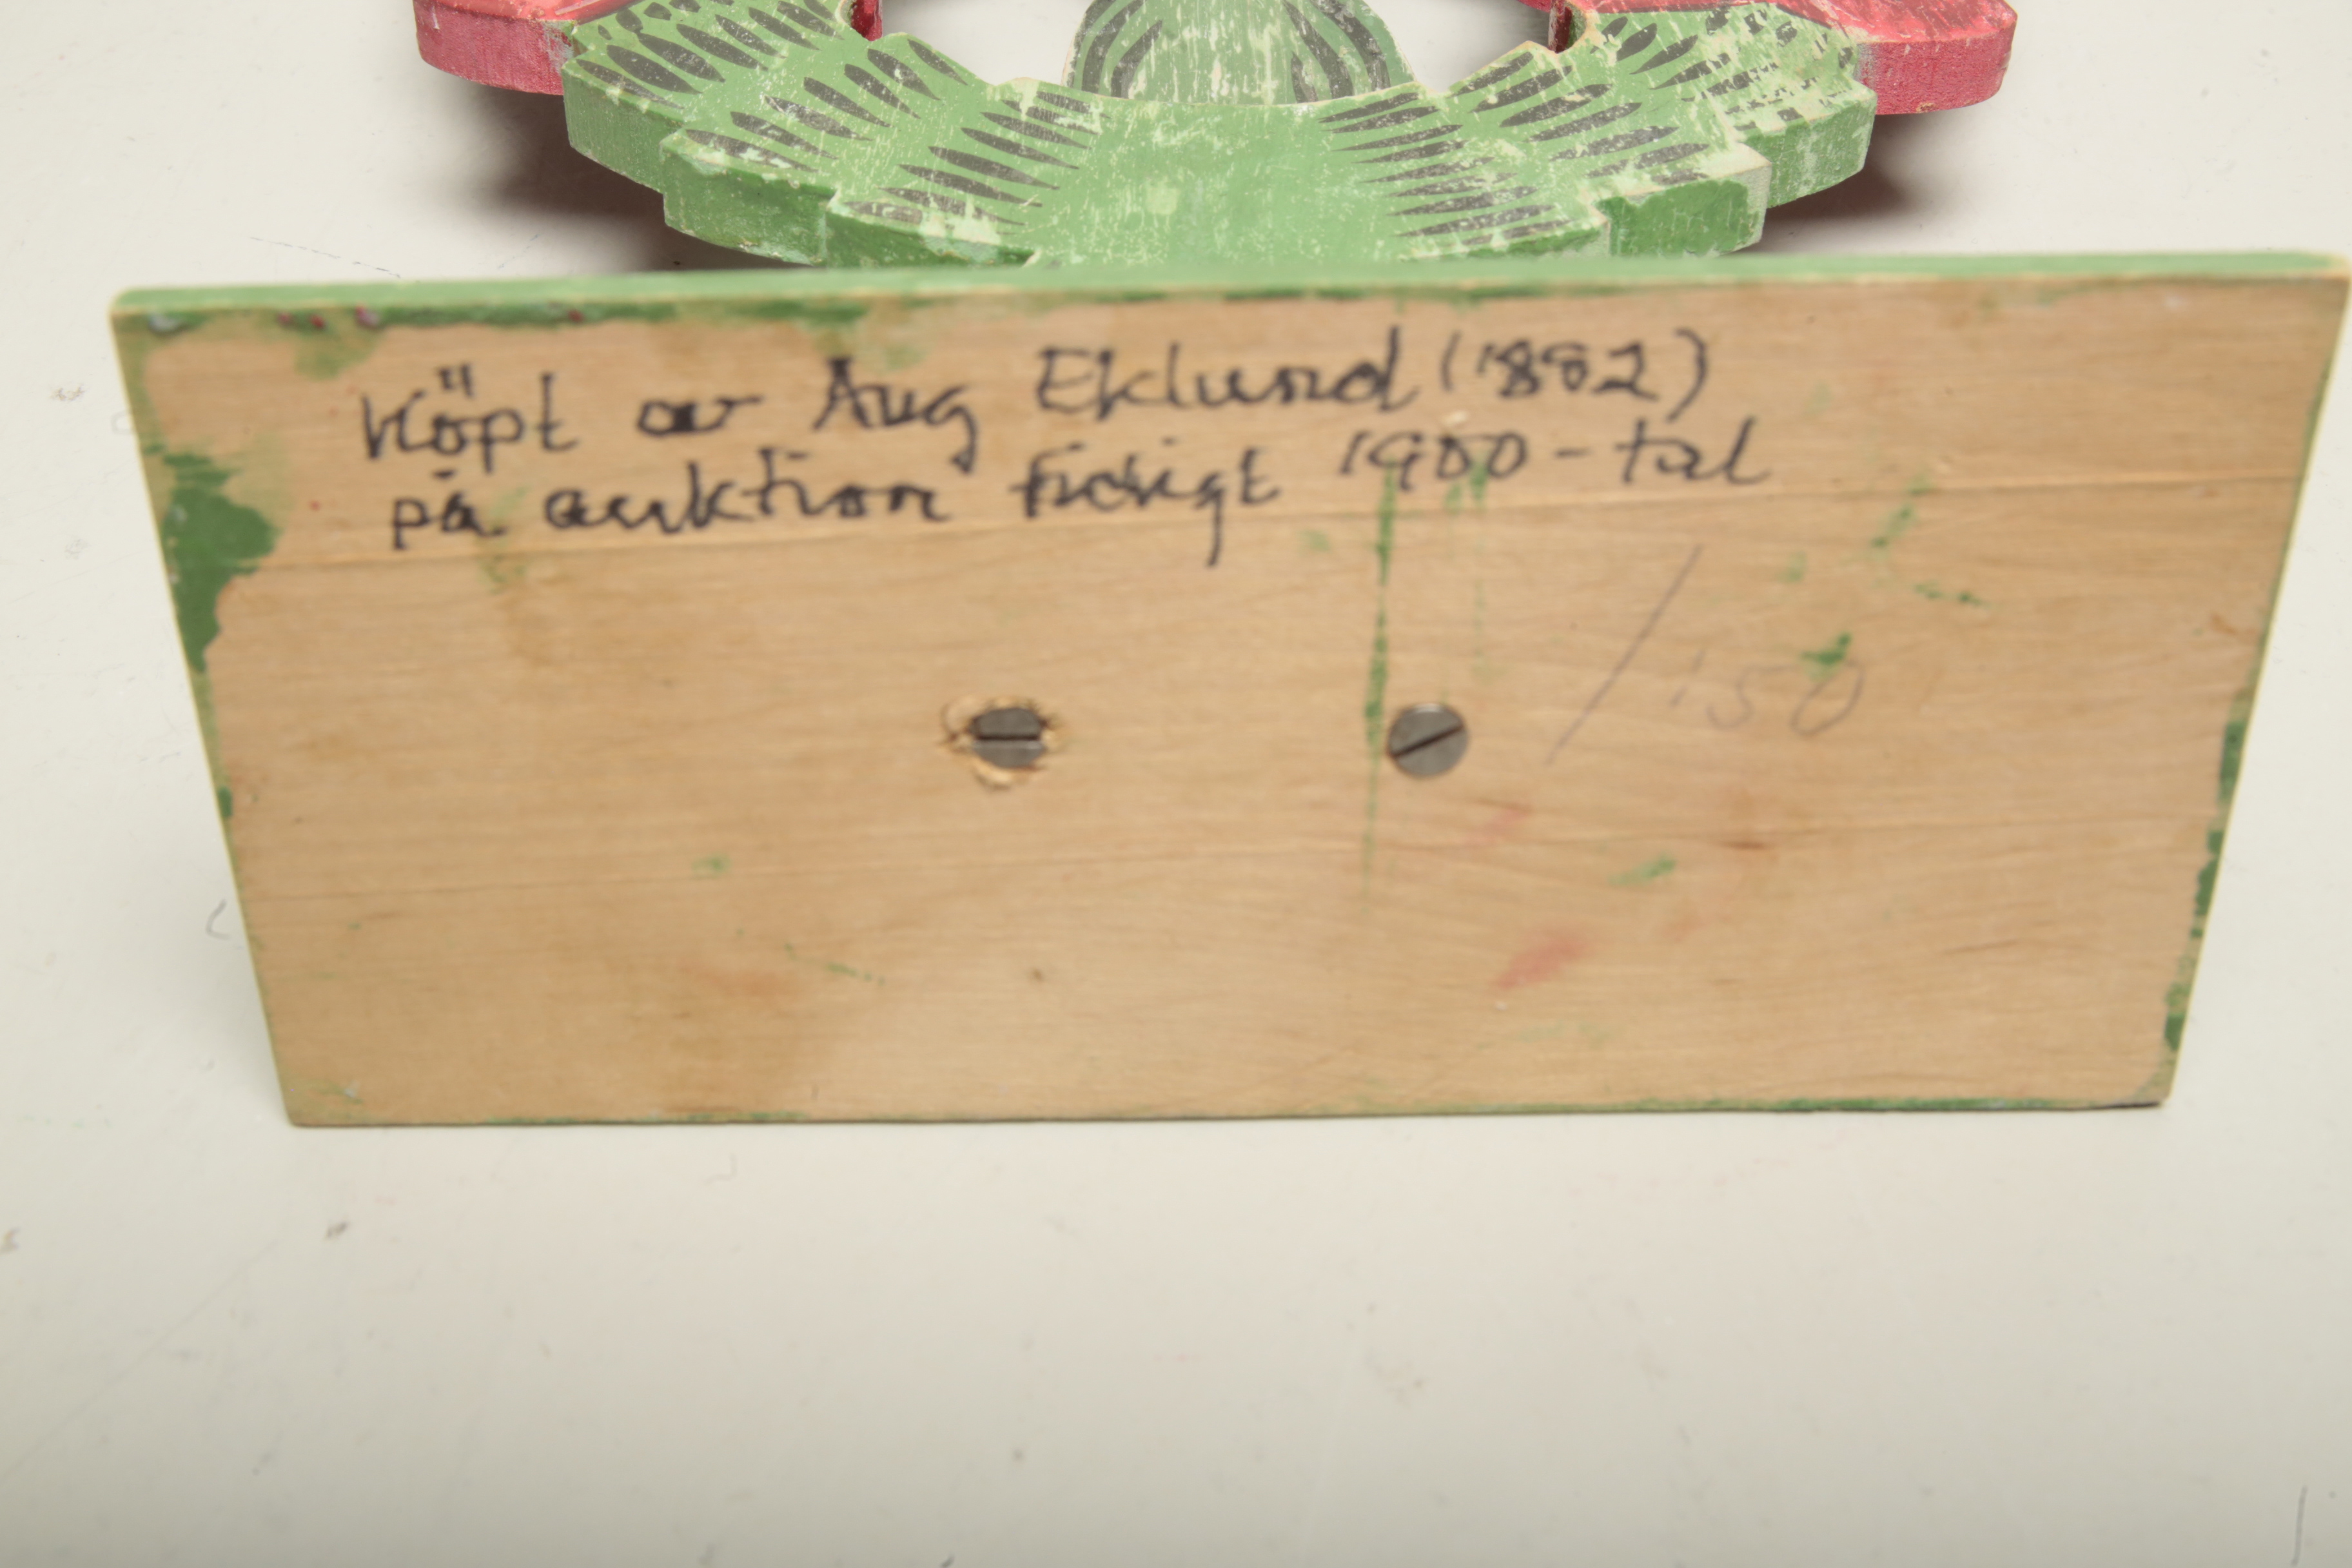 Köpt av Aug Eklund (1882)
på auktion tidigt 1900-tal
/:50